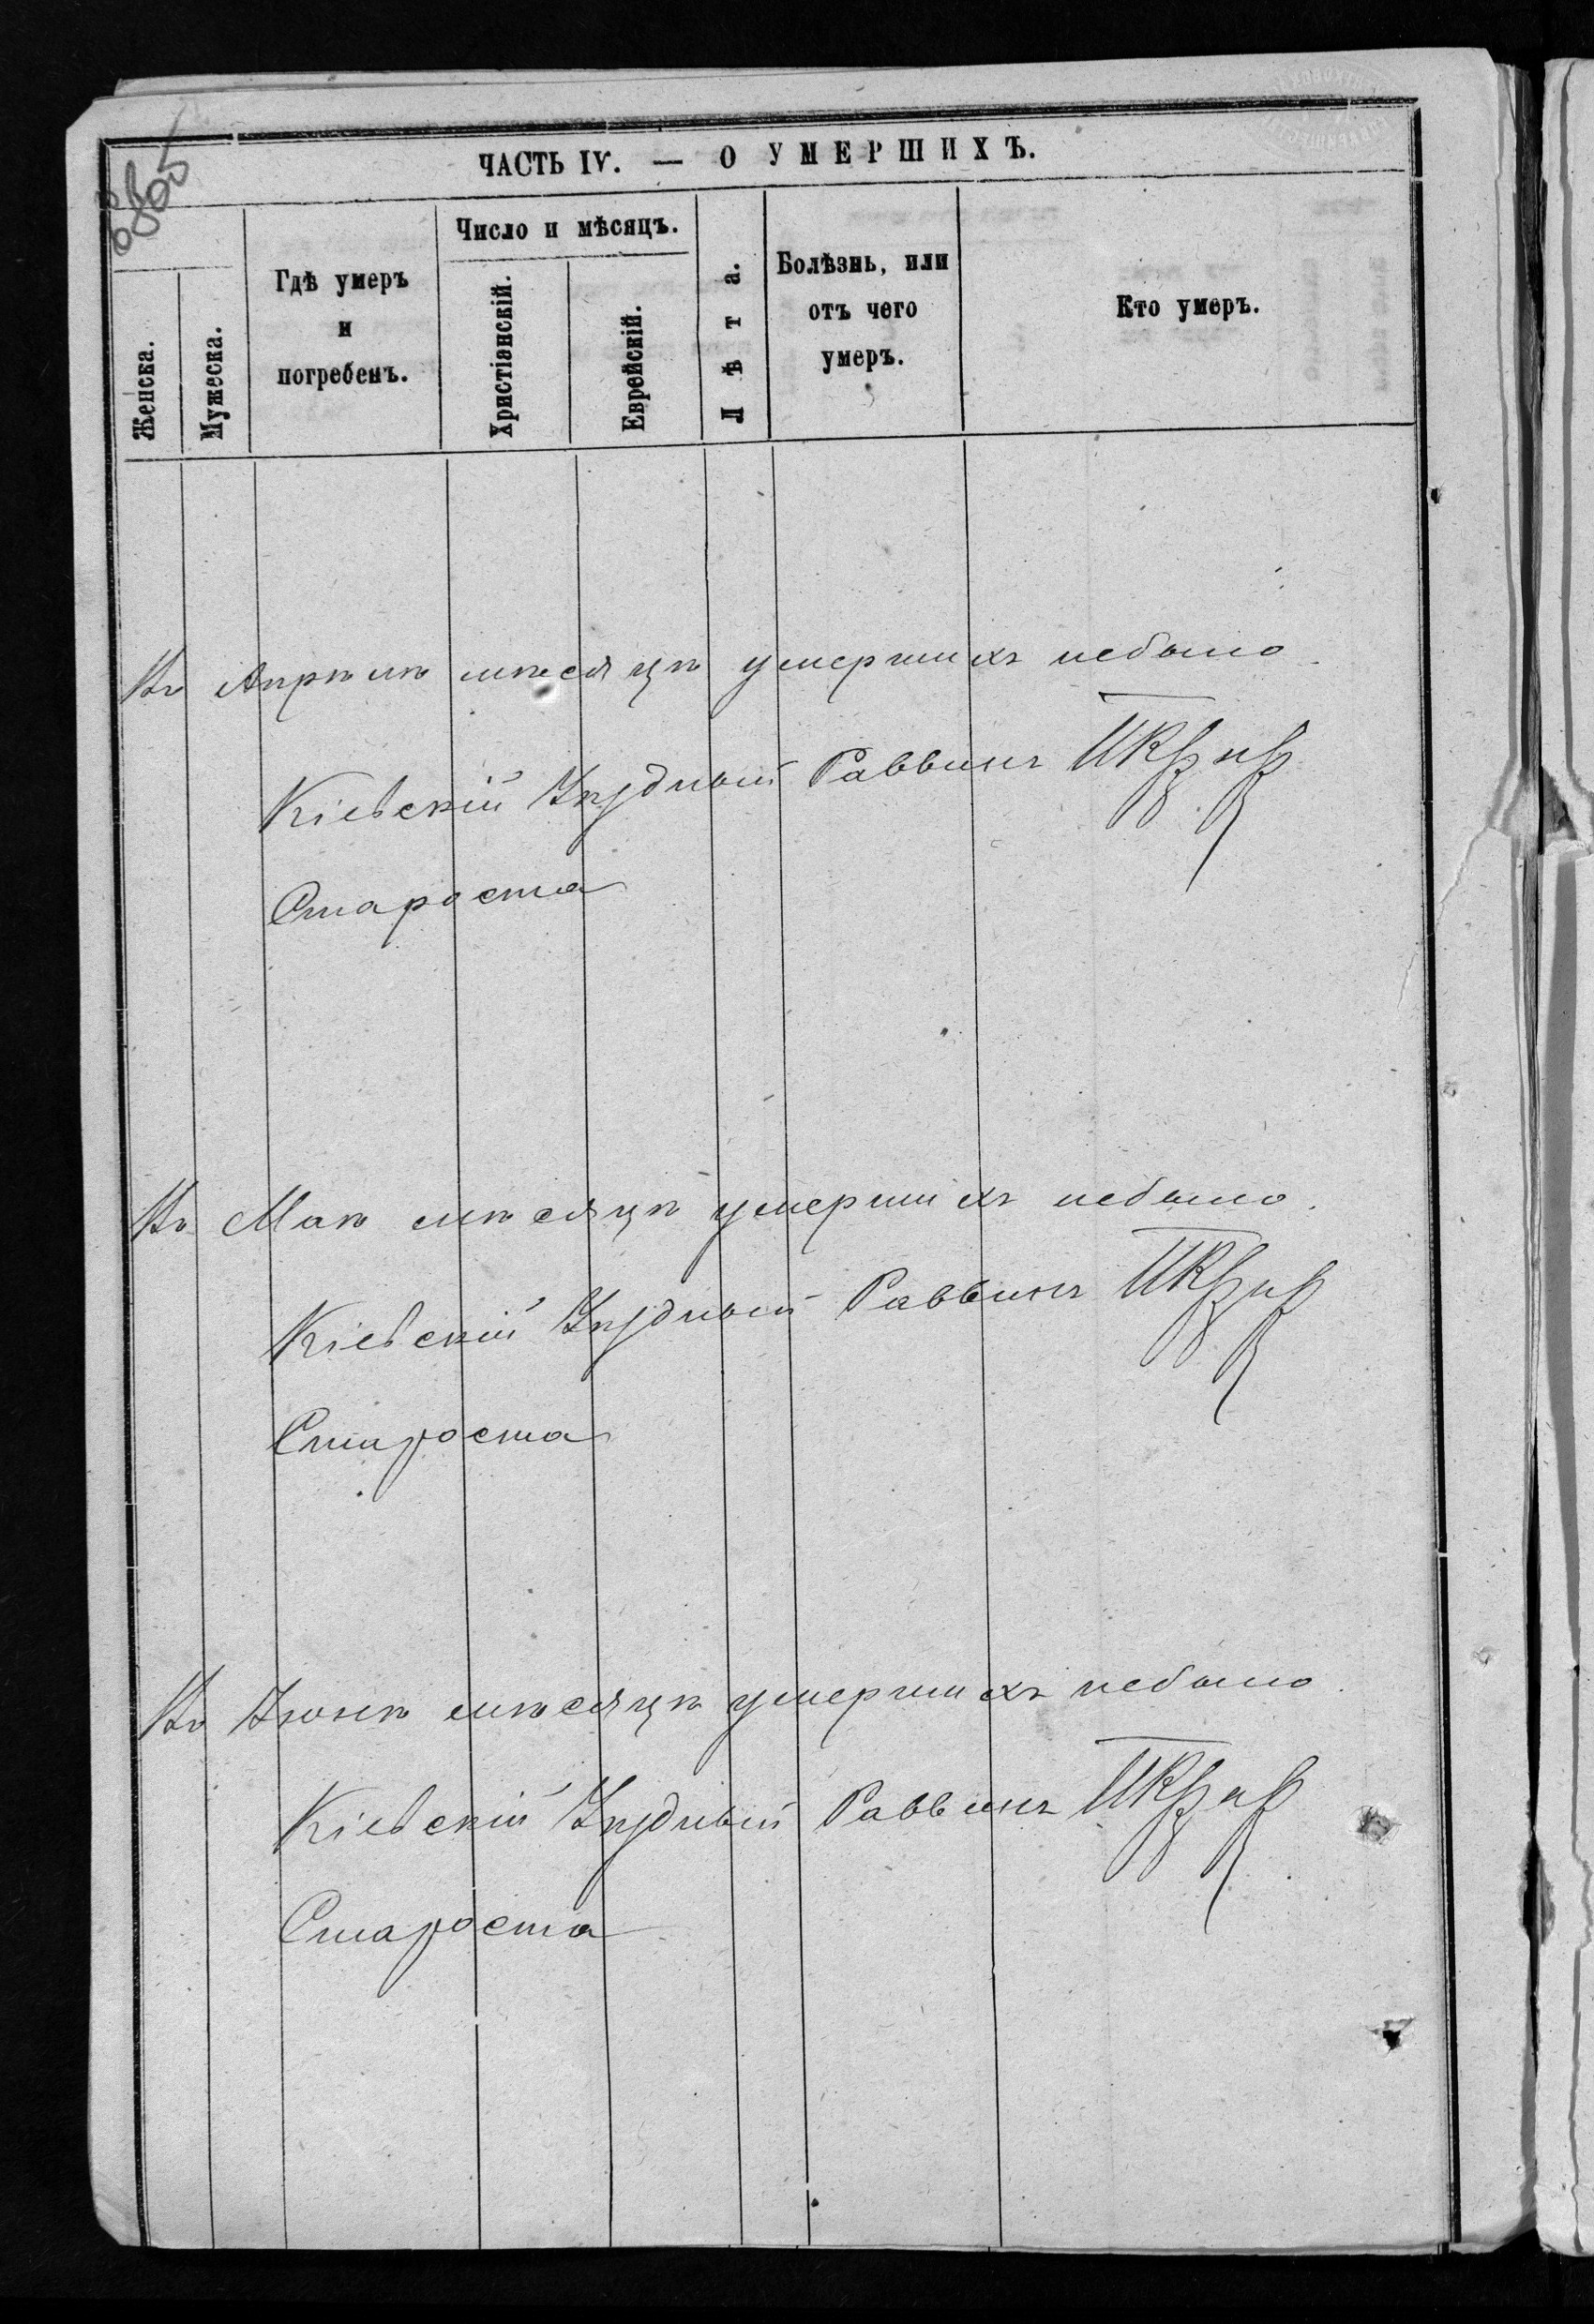 ЧАСТЬ IV. — О УМЕРШИХЪ.
Женска.
Мужеска.
Гдѣ умеръ
и
погребенъ.
Число и мѣсяцъ.
Христіанскій.
Еврейскій.
Лѣта.
Болѣзнь, или
отъ чего
умеръ.
Кто умеръ.
Въ Апрѣлѣ мѣсяцѣ умершихъ небыло.
Кіевскій Уѣздный Раввинъ
Староста
Въ Маѣ мѣсяцѣ умершихъ небыло.
Кіевскій Уѣздный Раввинъ
Староста
Въ Іюнѣ мѣсяцѣ умершихъ небыло.
Кіевскій Уѣздный Раввинъ
Староста